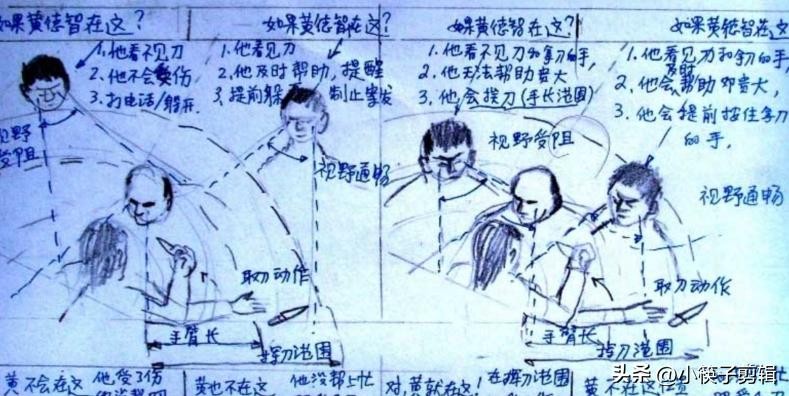 如果黄德智在这?
1.他看不见刀
2.他不会受伤
3.打电话/躲开
视野
受阻
如果黄德智在这?
1.他看见刀
2.他及时帮助,提醒
3.提前躲 制止案发
视野通畅
取刀动作
手臂长
挥刀范围
如果黄德智在这?
1.他看不见刀和拿刀的手,
2.他无法帮助
3.他会挨刀(手长范围)
视野受阻
如果黄德智在这
1.他看见刀和拿刀的手,
2.他会帮助邓贵大,
3.他会提前按住拿刀
的手,
视野通畅
取刀动作
手臂长
挥刀范围
黄不会在这
他受了伤
黄也不在这
他没帮上忙
对,黄就在这!
在挥刀范围
黄不在这
头条 @小筷子剪辑